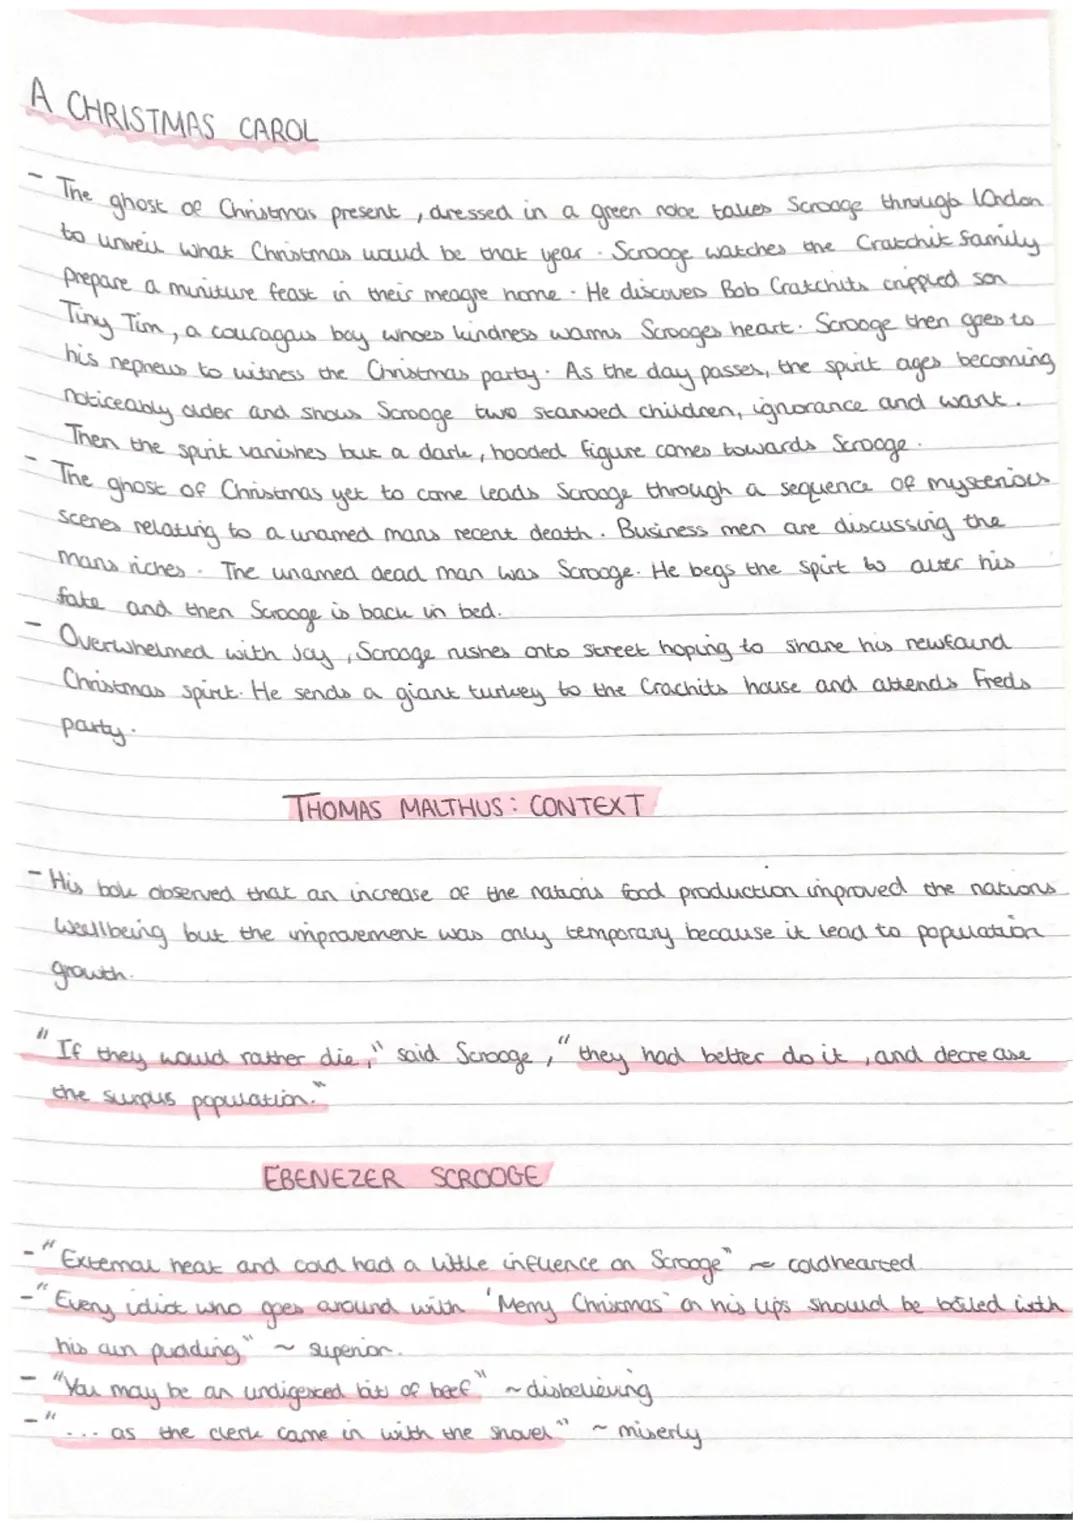 A CHRISTMAS CAROL
- The ghost of Christmas present, dressed in a green robe takes Scrooge through london
to unveil what Christmas would be that year. Scrooge watches the Cratchit family
prepare a miniture feast in their meagre home. He discovers Bob Cratchits crippled son
Tiny Tim, a couragous boy whoes kindness warms Scrooges heart. Scrooge then goes to
his nephews to witness the Christmas party. As the day passes, the spirit ages becoming
noticeably older and shows Scrooge two starved children, ignorance and want.
Then the spirit vanishes but a dark, hooded figure comes towards Scrooge.
- The ghost of Christmas yet to come leads Scrooge through a sequence of mysterious
scenes relating to a unamed mans recent death. Business men are discussing the
mans riches. The unamed dead man was Scrooge. He begs the spirt to alter his
fate and then Scrooge is back in bed.
- Overwhelmed with joy, Scrooge rushes onto street hoping to share his newfound
Christmas spirit. He sends a giant turkey to the Crachits house and attends Freds
party.
THOMAS MALTHUS: CONTEXT
- His book observed that an increase of the nations food production improved the nations
wellbeing but the improvement was only temporary because it lead to population
growth.
"If they would rather die," said Scrooge, "they had better do it, and decrease
the surplus population."
EBENEZER SCROOGE
- "External heat and cold had a little influence on Scrooge" ~ coldhearted
- "Every idiot who goes around with 'Merry Christmas' on his lips should be boiled with
his own pudding" ~ superior.
- "You may be an undigested bit of beef" ~ disbelieving
- "... as the clerk came in with the shovel" ~ miserly